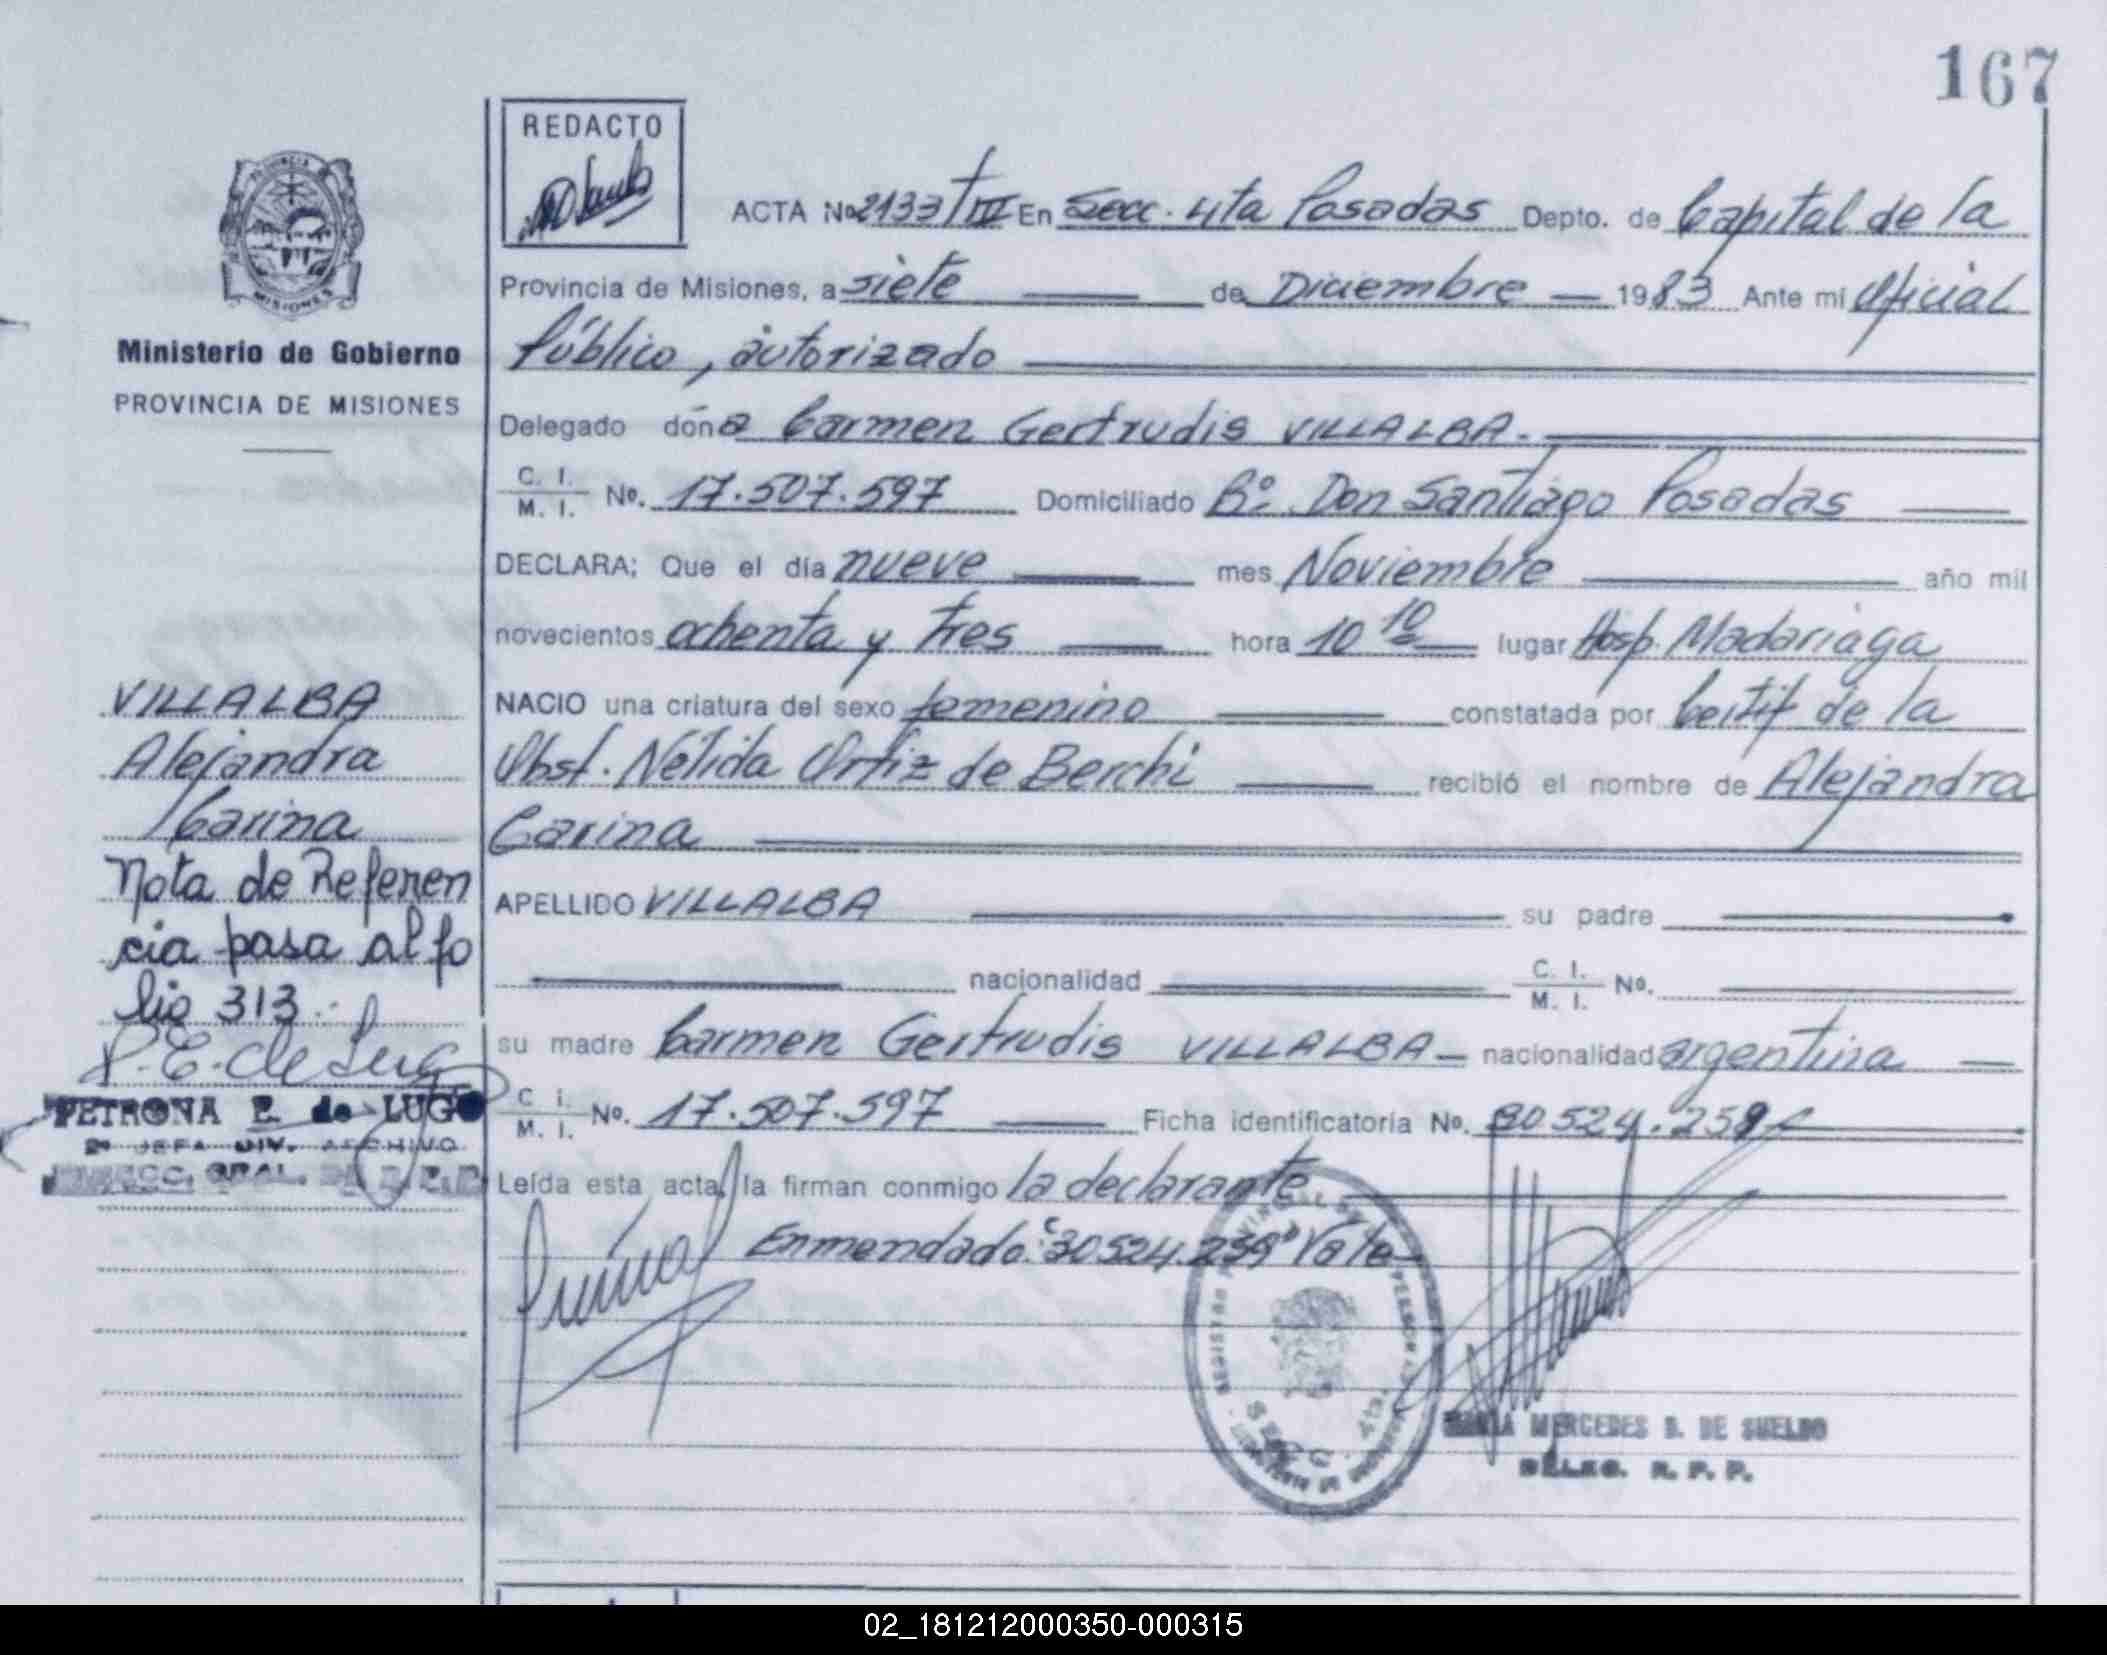 167
REDACTO
ACTA No 2133/TIII En Secc. 4ta Posadas Depto. de Capital de la
Provincia de Misiones, a siete de Diciembre 1983 Ante mi Oficial
Público, autorizado
Delegado doña Carmen Gertrudis VILLALBA.
C. I. / M. I. No. 17.507.597 Domiciliado B°. Don Santiago Posadas
DECLARA; Que el día nueve mes Noviembre año mil
novecientos ochenta y tres hora 10 10 lugar Hosp. Madariaga
NACIO una criatura del sexo femenino constatada por Certif de la
Obst. Nélida Ortiz de Berchi recibió el nombre de Alejandra
Carina
APELLIDO VILLALBA su padre
nacionalidad C. I. / M. I. No.
su madre Carmen Gertrudis VILLALBA nacionalidad argentina
C. I. / M. I. No. 17.507.597 Ficha identificatoria No. 30524.259
Leída esta acta, la firman conmigo la declarante
Enmendado: "30524.259" Vale
MERCEDES B. DE
DELEG. R. P. P.
MISIONES
Ministerio de Gobierno
PROVINCIA DE MISIONES
VILLALBA
Alejandra
Carina
Nota de Referen
cia pasa al fo
lio 313.
P. E. de Lugo
PETRONA E. de LUGO
2° JEFA DIV. ARCHIVO
DIRECC. GRAL. DE R. P. P.
02_181212000350-000315